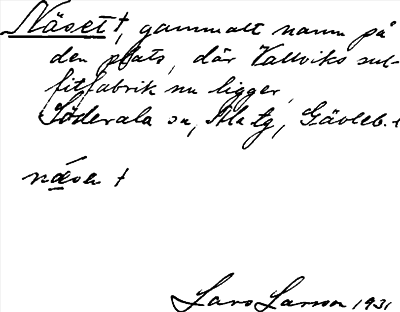 Näset †, gammalt namn på
den plats, där Vallviks sul-
fitfabrik nu ligger,
Söderala sn, Ala tg, Gävleb. l
näsə †
Lars Larsson 1931